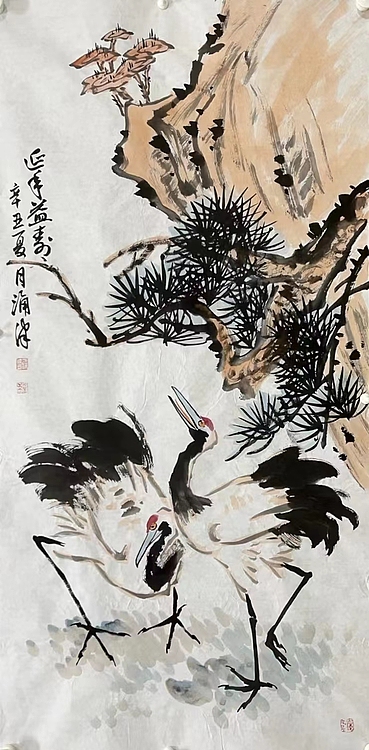 延年益寿
辛丑夏月涌泽